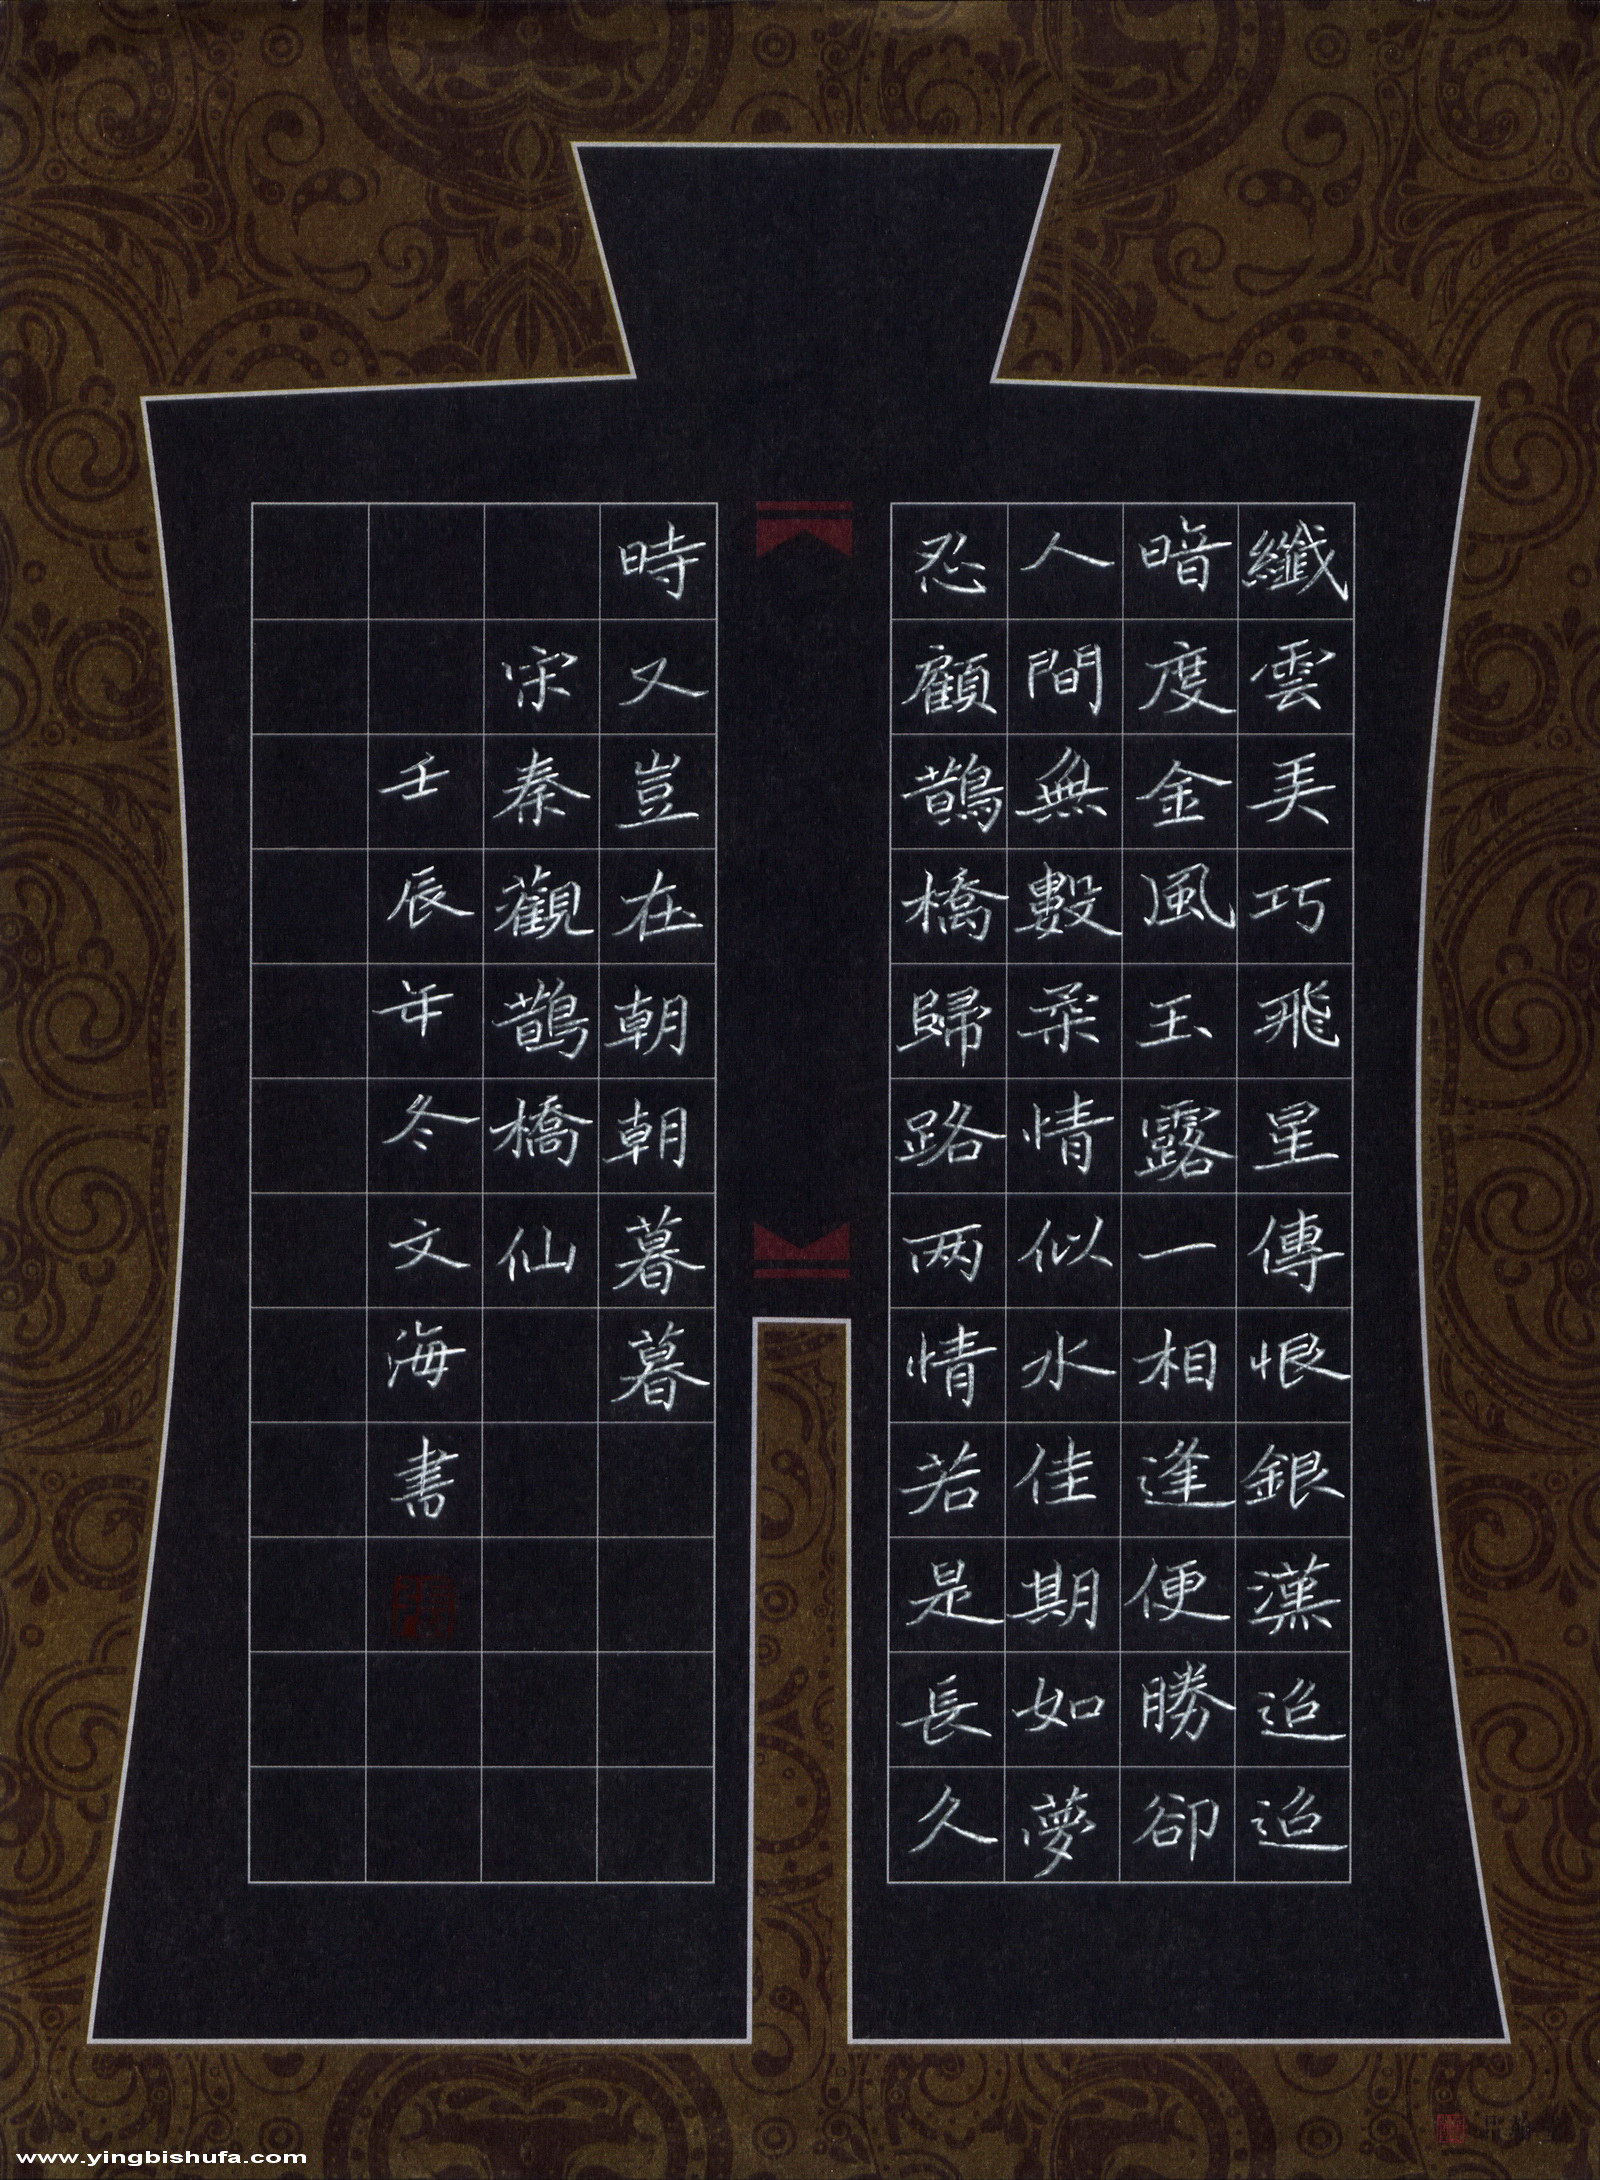 纖雲弄巧飛星傳恨銀漢迢迢
暗度金風玉露一相逢便勝卻
人間無數柔情似水佳期如夢
忍顧鵲橋歸路两情若是長久
時又豈在朝朝暮暮
宋秦觀鵲橋仙
壬辰年冬文海書
www.yingbishufa.com